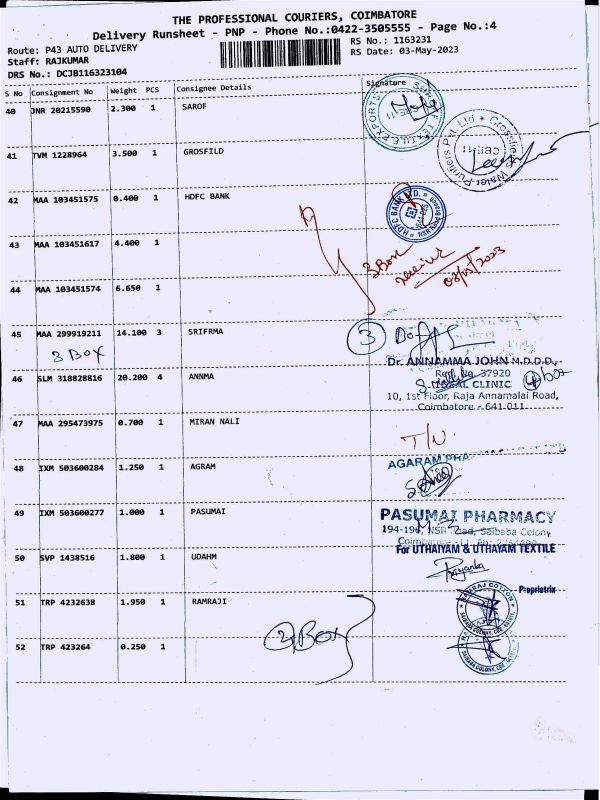 THE PROFESSIONAL COURIERS, COIMBATORE
Delivery Runsheet - PNP - Phone No.:0422-3505555 - Page No.:4
Route: P43 AUTO DELIVERY
RS No.: 1163231
Staff: RAJKUMAR
RS Date: 03-May-2023
DRS No.: DCJB116323104
S No Consignment No Weight PCS Consignee Details Signature
40 JNR 20215590 2.300 1 SAROF
41 TVM 1228964 3.500 1 GROSFILD
42 MAA 103451575 0.400 1 HDFC BANK
HDFC BANK LTD.
43 MAA 103451617 4.400 1
3 Box
03/05/2023
44 MAA 103451574 6.650 1
45 MAA 299919211 14.100 3 SRIFRMA
3 BOX
3
Dr. ANNAMMA JOHN M.D.D.D.,
Reg. No. 37920
46 SLM 318828816 20.200 4 ANNMA
CLINIC
4 box
10, 1st Floor, Raja Annamalai Road,
Coimbatore - 641 011.
47 MAA 295473975 0.700 1 MIRAN NALI
T/N
48 IXM 503600284 1.250 1 AGRAM
AGARAM PHA
49 IXM 503600277 1.000 1 PASUMAI
PASUMAI PHARMACY
194-196, NSR Road, Saibaba Colony
For UTHAIYAM & UTHAYAM TEXTILE
50 SVP 1438516 1.800 1 UDAHM
Priyanka
Proprietrix
51 TRP 4232638 1.950 1 RAMRAJI
2 Box
52 TRP 423264 0.250 1